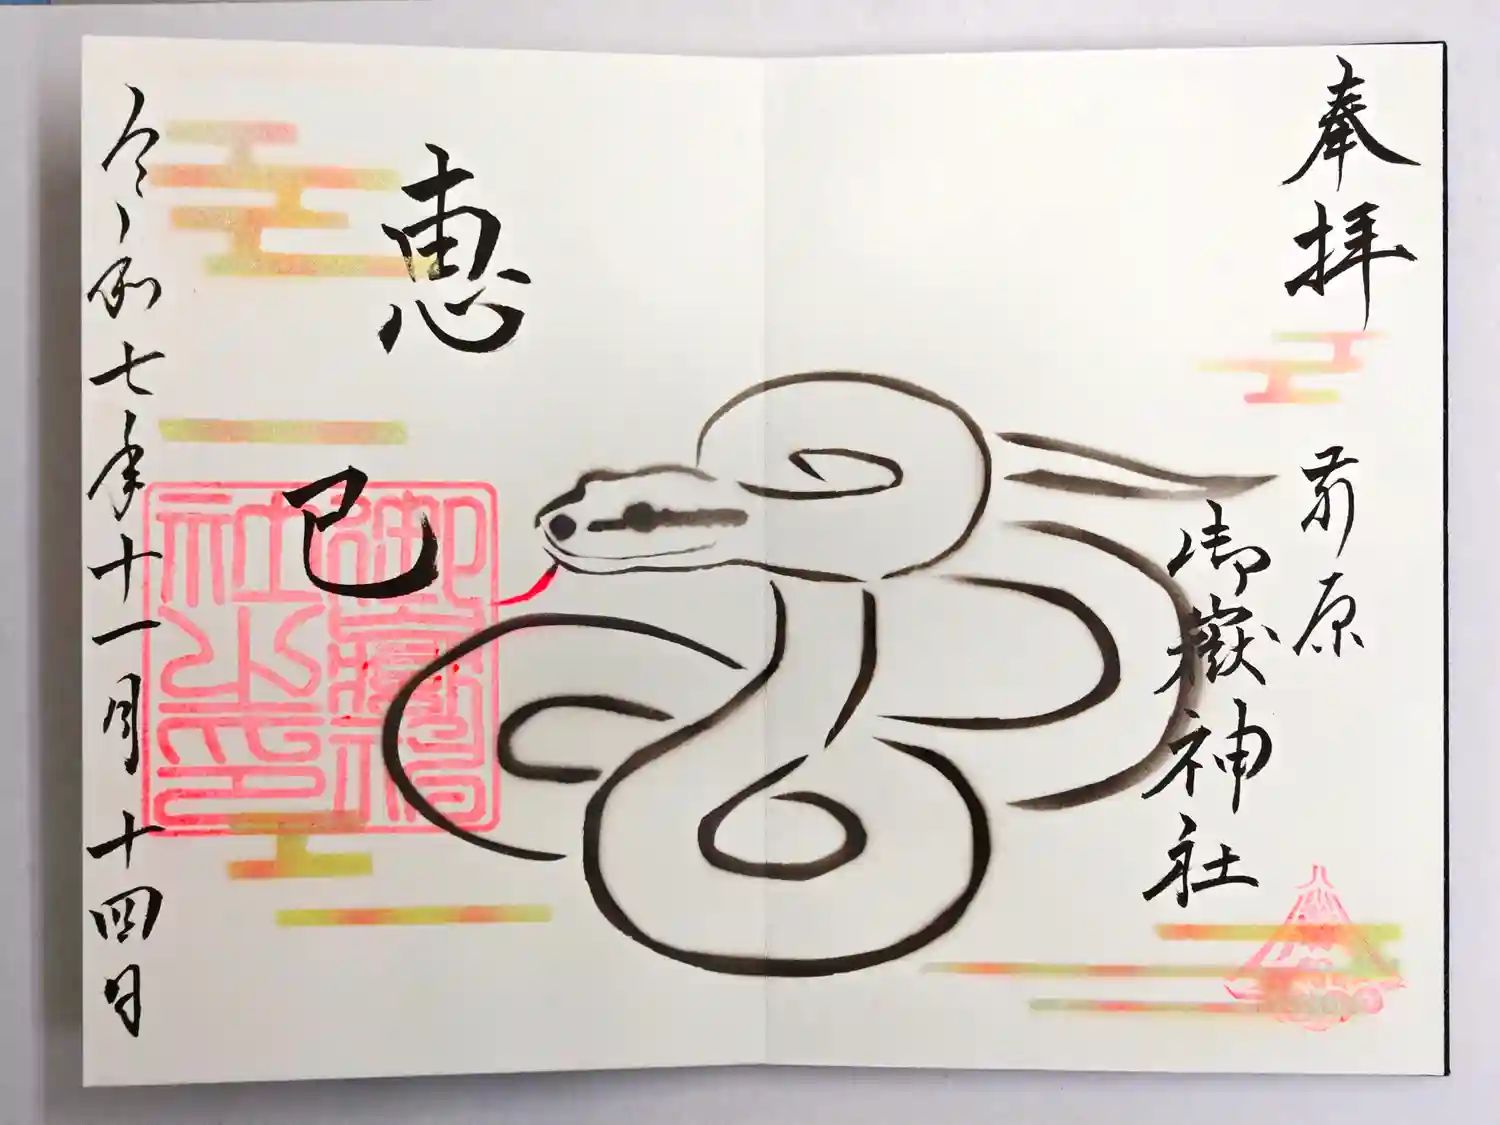 奉拝
前原
御嶽神社
恵
巳
令和七年十一月十四日
御嶽神
社之印